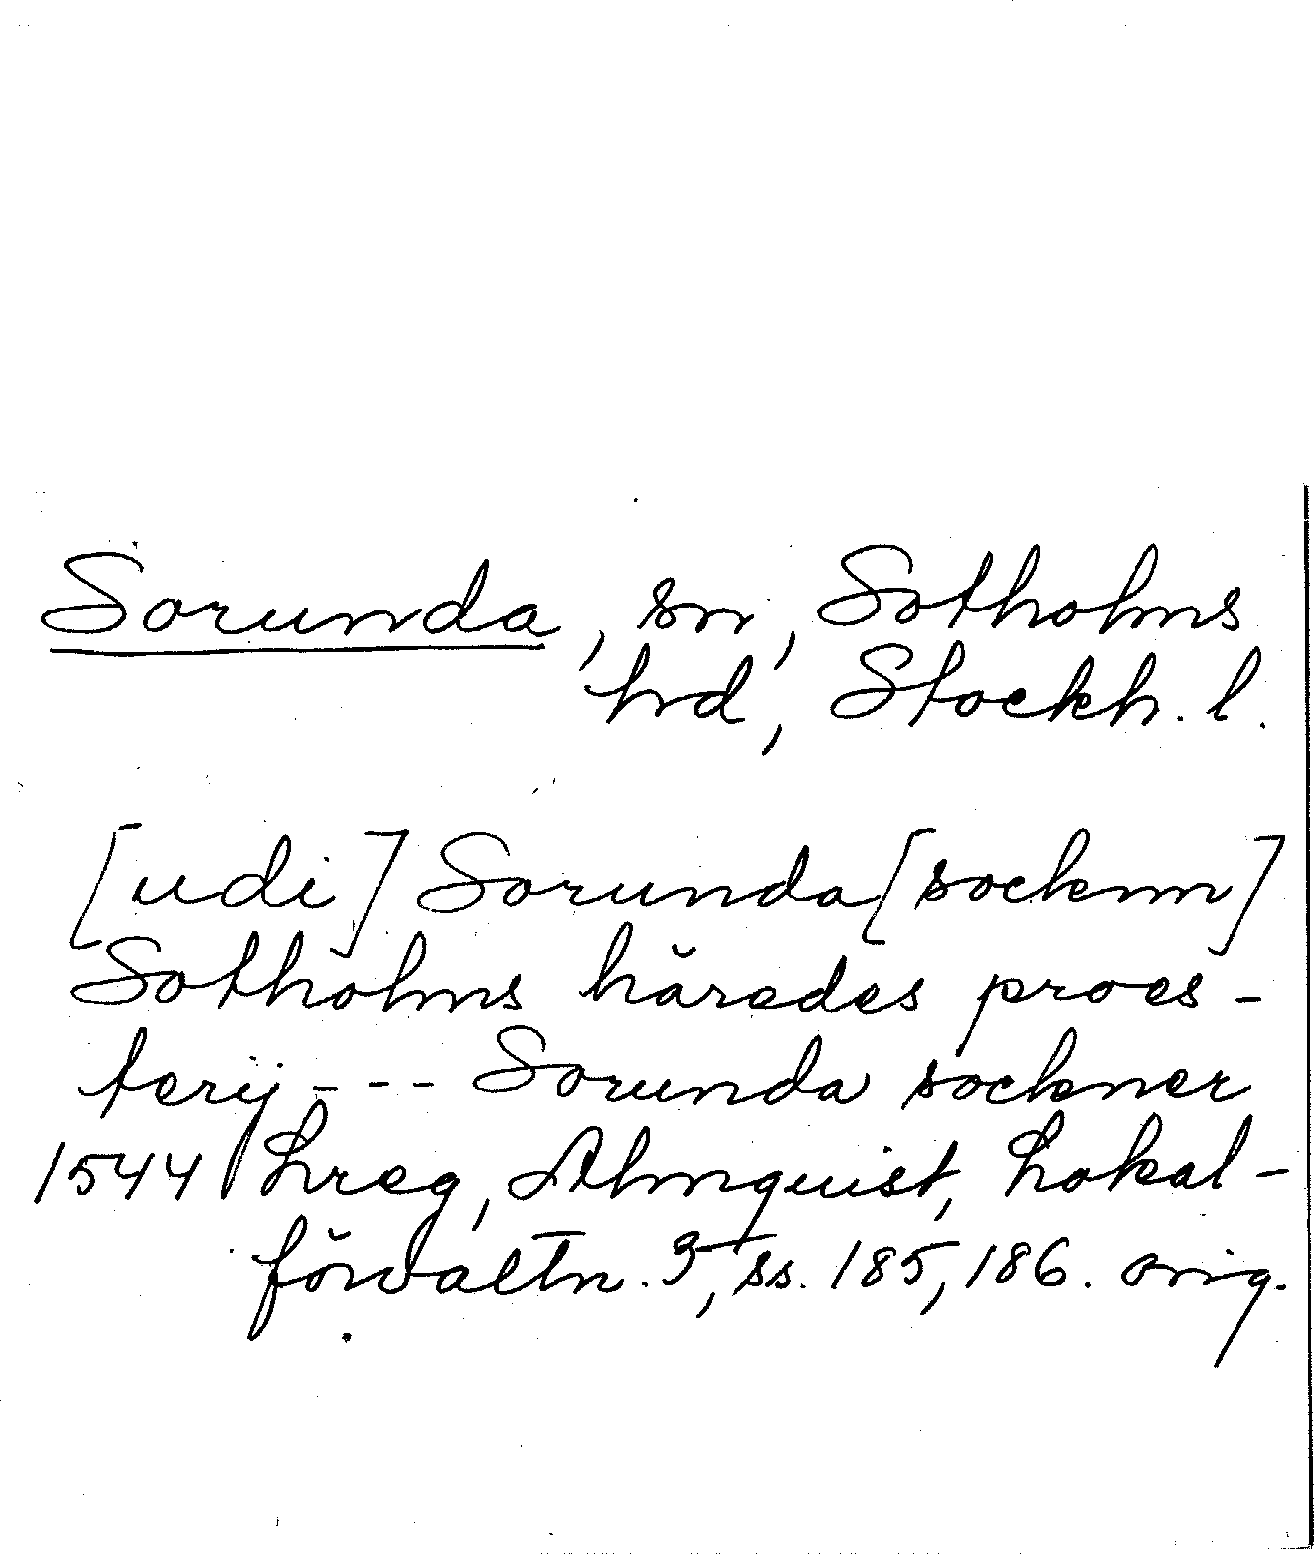 Sorunda, sn, Sotholms
hrd, Stockh. l.
[udi] Sorunda [socknn]
Sotholms härades proes-
terij --- Sorunda sockner
1544 Lreg, Almquist, Lokal-
förvaltn. 3, ss. 185, 186. orig.